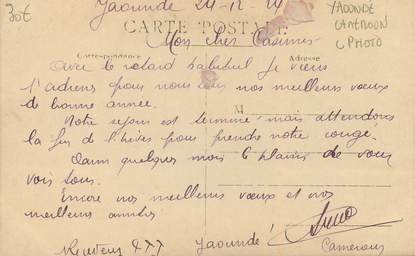 30€
Yaoundé 24-12-24
YAOUNDÉ
CAMEROUN
CPHOTO
CARTE POSTALE
Mon cher Casimir
Correspondance
Adresse
Avec le retard habituel je viens
t'adresser pour nous nos meilleurs vœux
de bonne année.
M
Notre séjour est terminé mais attendons
la fin de l'hiver pour prendre notre congé.
Dans quelques mois le plaisir de vous
voir tous.
Encore nos meilleurs vœux et nos
meilleures amitiés
Yaoundé
Cameroun